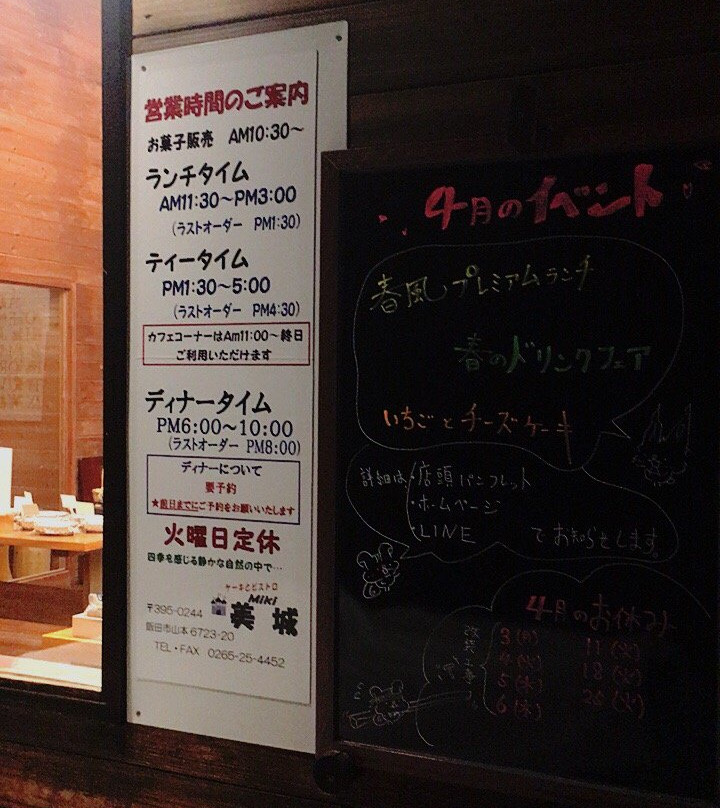 営業時間のご案内
お菓子販売 AM10:30～
ランチタイム
AM11:30～PM3:00
(ラストオーダー PM1:30)
ティータイム
PM1:30～5:00
(ラストオーダー PM4:30)
カフェコーナーはAm11:00～終日
ご利用いただけます
ディナータイム
PM6:00～10:00
(ラストオーダー PM8:00)
ディナーについて
要予約
★前日までにご予約をお願いいたします
火曜日定休
四季を感じる静かな自然の中で…
ケーキとビストロ
Miki
美城
〒395-0244
飯田市山本6723-20
TEL・FAX 0265-25-4452
4月のイベント
春風プレミアムランチ
春のドリンクフェア
いちごとチーズケーキ
詳細は・店頭パンフレット
・ホームページ
・LINE でお知らせします。
4月のお休み
3(月) 11(火)
4(火) 18(火)
5(水)
6(木)